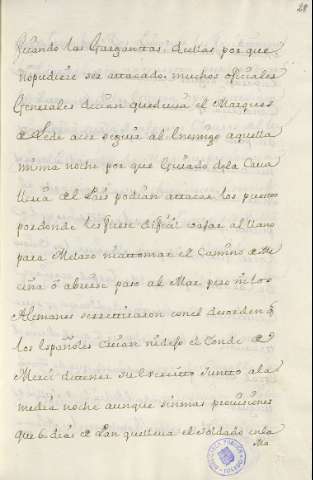 28
Cuando las Gargantas, dudas por que
nopudiere ser attacado, muchos oficiales
Generales decian que devia el Marques
de Lede aver seguir al Enemigo aquella
misma noche por que Guiado dela Cava
lleria del Pais podian attacar los puestos
por donde les fuese dificil vajar al llano
para Melazo ni attomar el Camino de Me
cina ó abrirse paso al Mar, pero ni los
Alemanes se rettiraron con el desorden q̃
los Españoles creian ni dejo el Conde de
Merci dettener su Exercito Juntto a la
media noche aunque sin mas provisiones
que 6 dias de Pan que lleva el Soldado en la
Mo